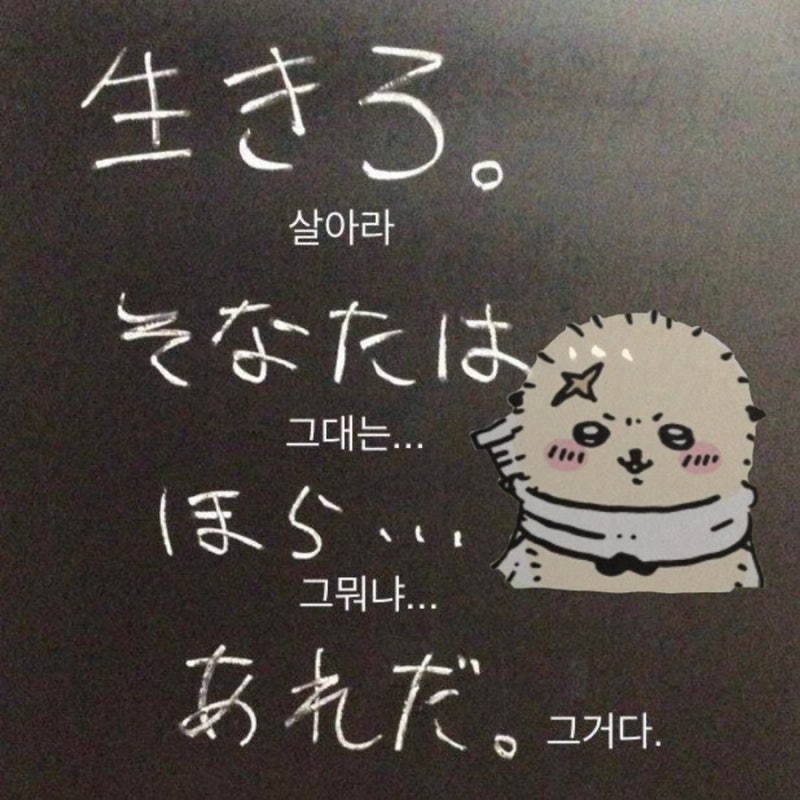 生きろ。
살아라
そなたは
그대는...
ほら...
그뭐냐...
あれだ。 그거다.